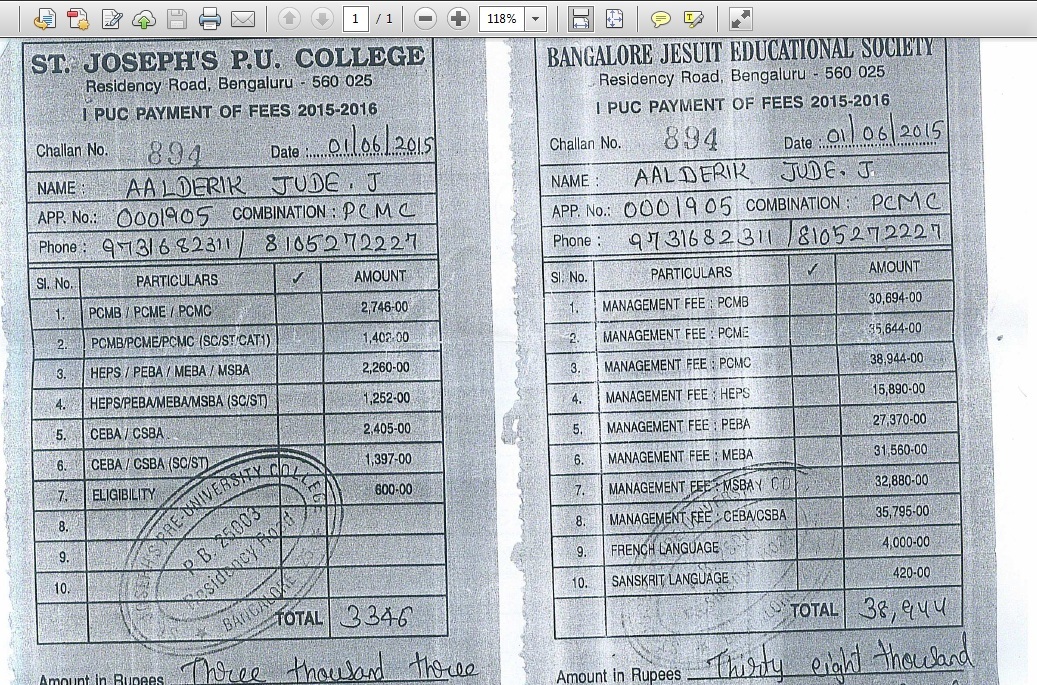 1 / 1 118%
ST. JOSEPH'S P.U. COLLEGE
Residency Road, Bengaluru - 560 025
I PUC PAYMENT OF FEES 2015-2016
Challan No. 894 Date : 01/06/2015
NAME : AALDERIK JUDE. J
APP. No.: 0001905 COMBINATION : PCMC
Phone : 9731682311 / 8105272227
Sl. No. PARTICULARS ✓ AMOUNT
1. PCMB / PCME / PCMC 2,746-00
2. PCMB/PCME/PCMC (SC/ST/CAT1) 1,402-00
3. HEPS / PEBA / MEBA / MSBA 2,260-00
4. HEPS/PEBA/MEBA/MSBA (SC/ST) 1,252-00
5. CEBA / CSBA 2,405-00
6. CEBA / CSBA (SC/ST) 1,397-00
7. ELIGIBILITY 600-00
8.
9.
10.
TOTAL 3346
Amount in Rupees Three thousand three
JOSEPH'S PRE-UNIVERSITY COLLEGE
P.B. 25003
Residency Road
BANGALORE
BANGALORE JESUIT EDUCATIONAL SOCIETY
Residency Road, Bengaluru - 560 025
I PUC PAYMENT OF FEES 2015-2016
Challan No. 894 Date : 01/06/2015
NAME : AALDERIK JUDE. J
APP. No.: 0001905 COMBINATION : PCMC
Phone : 9731682311 / 8105272227
Sl. No. PARTICULARS ✓ AMOUNT
1. MANAGEMENT FEE : PCMB 30,694-00
2. MANAGEMENT FEE : PCME 35,644-00
3. MANAGEMENT FEE : PCMC 38,944-00
4. MANAGEMENT FEE : HEPS 15,890-00
5. MANAGEMENT FEE : PEBA 27,370-00
6. MANAGEMENT FEE : MEBA 31,560-00
7. MANAGEMENT FEE : MSBA 32,880-00
8. MANAGEMENT FEE : CEBA/CSBA 35,795-00
9. FRENCH LANGUAGE 4,000-00
10. SANSKRIT LANGUAGE 420-00
TOTAL 38,944
Amount in Rupees Thirty eight thousand